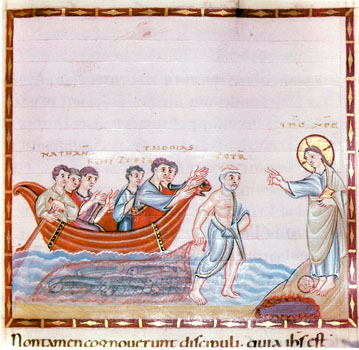 IHC XPC
THOMAS
NATHAN PETR
FILII
Non tamen cognouerunt discipuli. quia ihs est